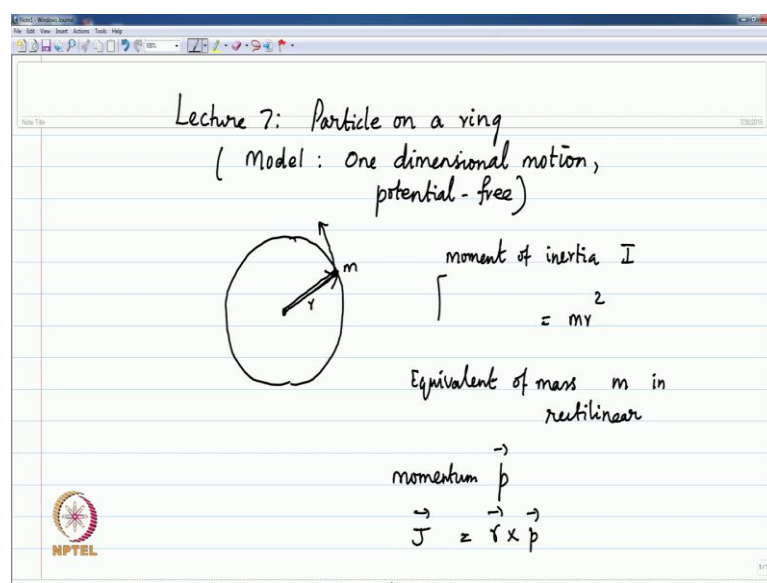 Note1 - Windows Journal
File Edit View Insert Actions Tools Help
Note Title
7/30/2015
Lecture 7: Particle on a ring
( Model : One dimensional motion,
potential - free)
m
r
moment of inertia I
= mr²
Equivalent of mass m in
rectilinear
momentum p⃗
J⃗ = r⃗ × p⃗
NPTEL
1/1